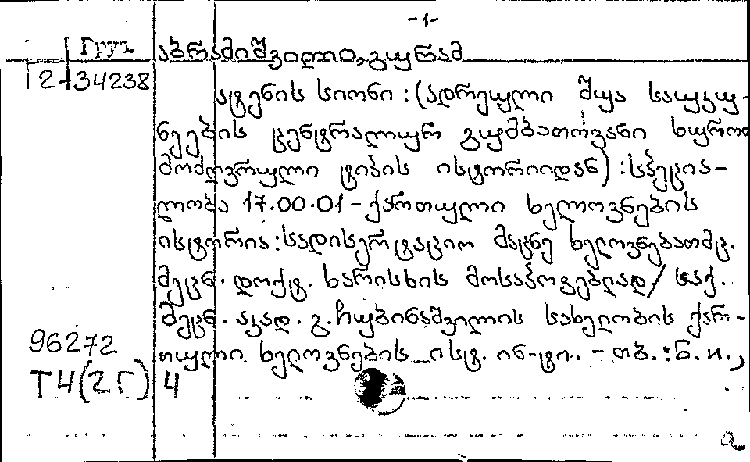 -1-
Груз. აბრამიშვილი, გურამ
2-34238
ატენის სიონი : (ადრეული შუა საუკუ-
ნეების ცენტრალურ გუმბათოვანი ხურო
მოძღვრული ტიპის ისტორიიდან) : სპეცია-
ლობა 17.00.01 - ქართული ხელოვნების
ისტორია : სადისერტაციო მაცნე ხელოვნებათმც.
მეცნ. დოქტ. ხარისხის მოსაპოვებლად / საქ.
მეცნ. აკად. გ. ჩუბინაშვილის სახელობის ქარ-
96272 თული ხელოვნების ისტ. ინ-ტი. - თბ. : ნ. ი.,
Т4(2Г) 4